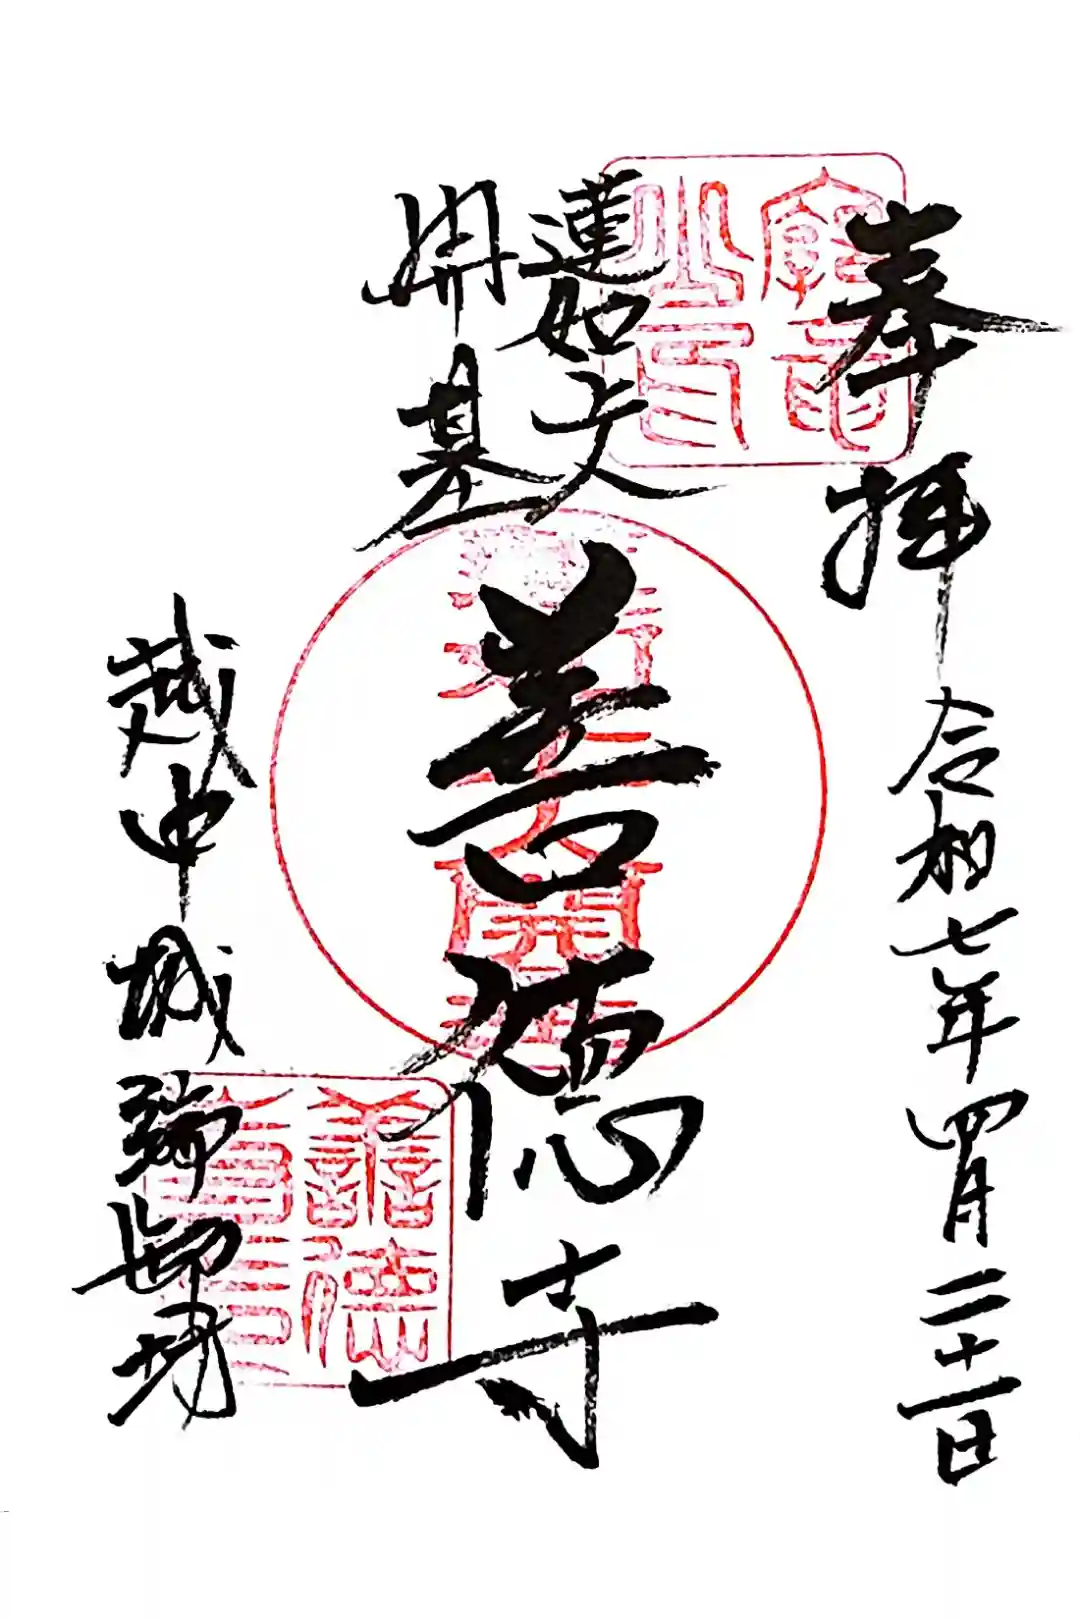 奉拝
令和七年四月二十一日
蓮如上人
開基
善德寺
越中城端御坊
善德